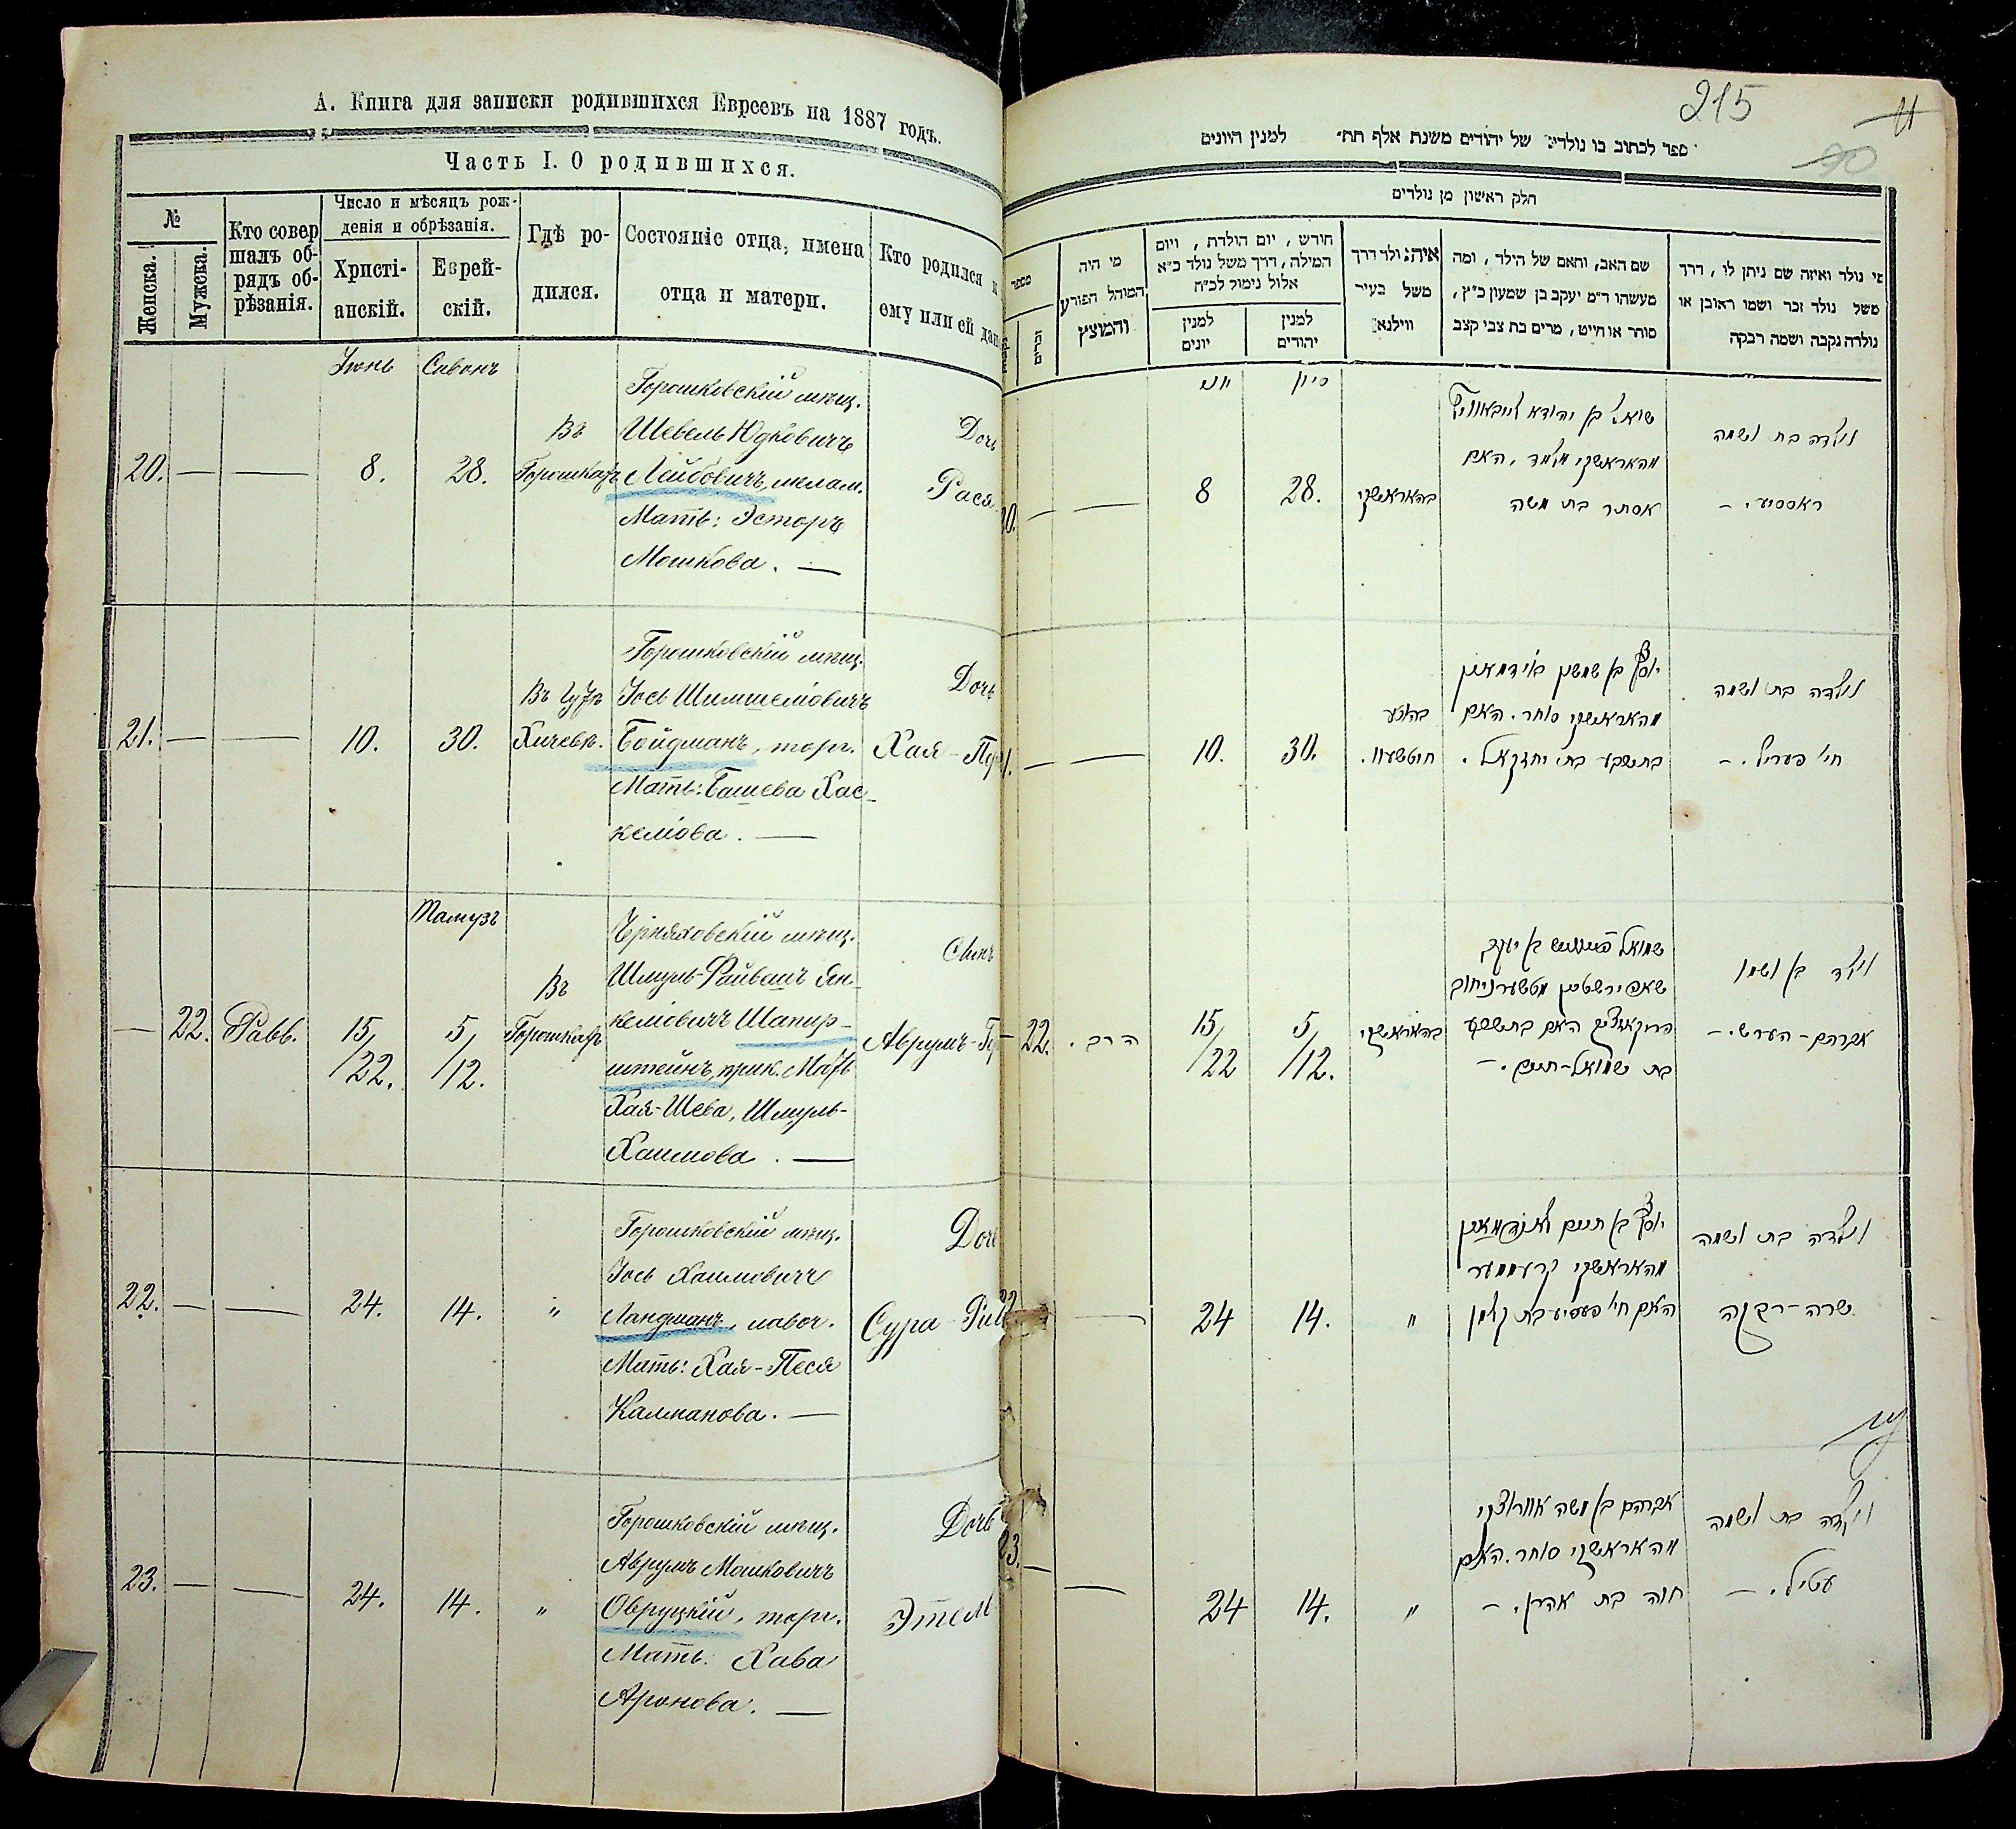 А. Книга для записки родившихся Евреевъ на 1887 годъ.
Часть I. О родившихся.
№
Женска.
Мужеска.
Кто совер
шалъ об-
рядъ об-
рѣзанія.
Число и мѣсяцъ рож-
денія и обрѣзанія.
Христі-
анскій.
Еврей-
скій.
Гдѣ ро-
дился.
Состояніе отца, имена
отца и матери.
Кто родился и
ему или ей дан
Іюнь
Сивонъ
20. — —
8.
28.
Въ
Горошкахъ
Горошковскій мѣщ.
Шевель Юдковичъ
Лейбовичъ, мелам.
Мать: Эстеръ
Мошкова. —
Дочь
Рася
21. — —
10.
30.
Хичевѣ.
Горошковскій мѣщ.
Іось Шимшеліовичъ
Бойдманъ, торг.
Мать: Башева Хас-
келіова. —
Дочь
Хая-
Тамузъ
— 22. Равв.
15/22.
5/12.
Въ
Горошкахъ
Черняховскій мѣщ.
Шмуль-Файвишъ Ян-
келіовичъ Шапир-
штейнъ, прик. Мать
Хая-Шева, Шмуль-
Хаимова. —
Сынъ
Аврумъ-
22. — —
24.
14.
"
Горошковскій мѣщ.
Іось Хаимовичъ
Ландманъ, лавоч.
Мать: Хая-Песя
Калманова. —
Дочь
Сура
23. — —
24.
14.
"
Горошковскій мѣщ.
Аврумъ Мошковичъ
Овруцкій, торг.
Мать: Хава
Аронова. —
Дочь
Этель
215
90
ספר לכתוב בו נולדים של יהודים משנת אלף תת״ למנין היונים
חלק ראשון מן נולדים
מספר
זכרים
מי היה
המוהל הפורע
והמוצץ
חודש, יום הולדת, ויום
המילה, דרך משל נולד כ״א
אלול נימול לכ״ח
למנין
יונים
למנין
יהודים
איה נולד דרך
משל בעיר
ווילנא
שם האב, והאם של הילד, ומה
מעשהו ד״מ יעקב בן שמעון כ״ץ,
סוחר או חייט, מרים בת צבי קצב
מי נולד ואיזה שם ניתן לו, דרך
משל נולד זכר ושמו ראובן או
נולדה נקבה ושמה רבקה
יוני
סיון
— —
8
28.
בהאראשקי
שאול בן יהודא לייבאוויץ
מהאראשקי מלמד. האם
אסתר בת משה
נולדה בת ושמה
ראססיע. —
— —
10.
30.
יוסף בן שמשון באידמאן
מהאראשקי סוחר. האם
בתשבע בת יחזקאל.
נולדה בת ושמה
חי׳ פעריל. —
22.
הרב.
15/22
5/12.
בהאראשקי
שאפירשטיין
האם בתשבע
בת שמואל-חיים. —
נולד בן ושמו
אברהם-הערש. —
22
—
24
14.
"
יוסף בן חיים לאנדמאן
מהאראשקי קרעמער
האם חי׳ פעסיע בת קלמן
נולדה בת ושמה
שרה-רבקה
23. —
—
24
14.
"
אברהם בן משה אוורוצקי
מהאראשקי סוחר. האם
חוה בת אהרן. —
נולדה בת ושמה
עטיל. —